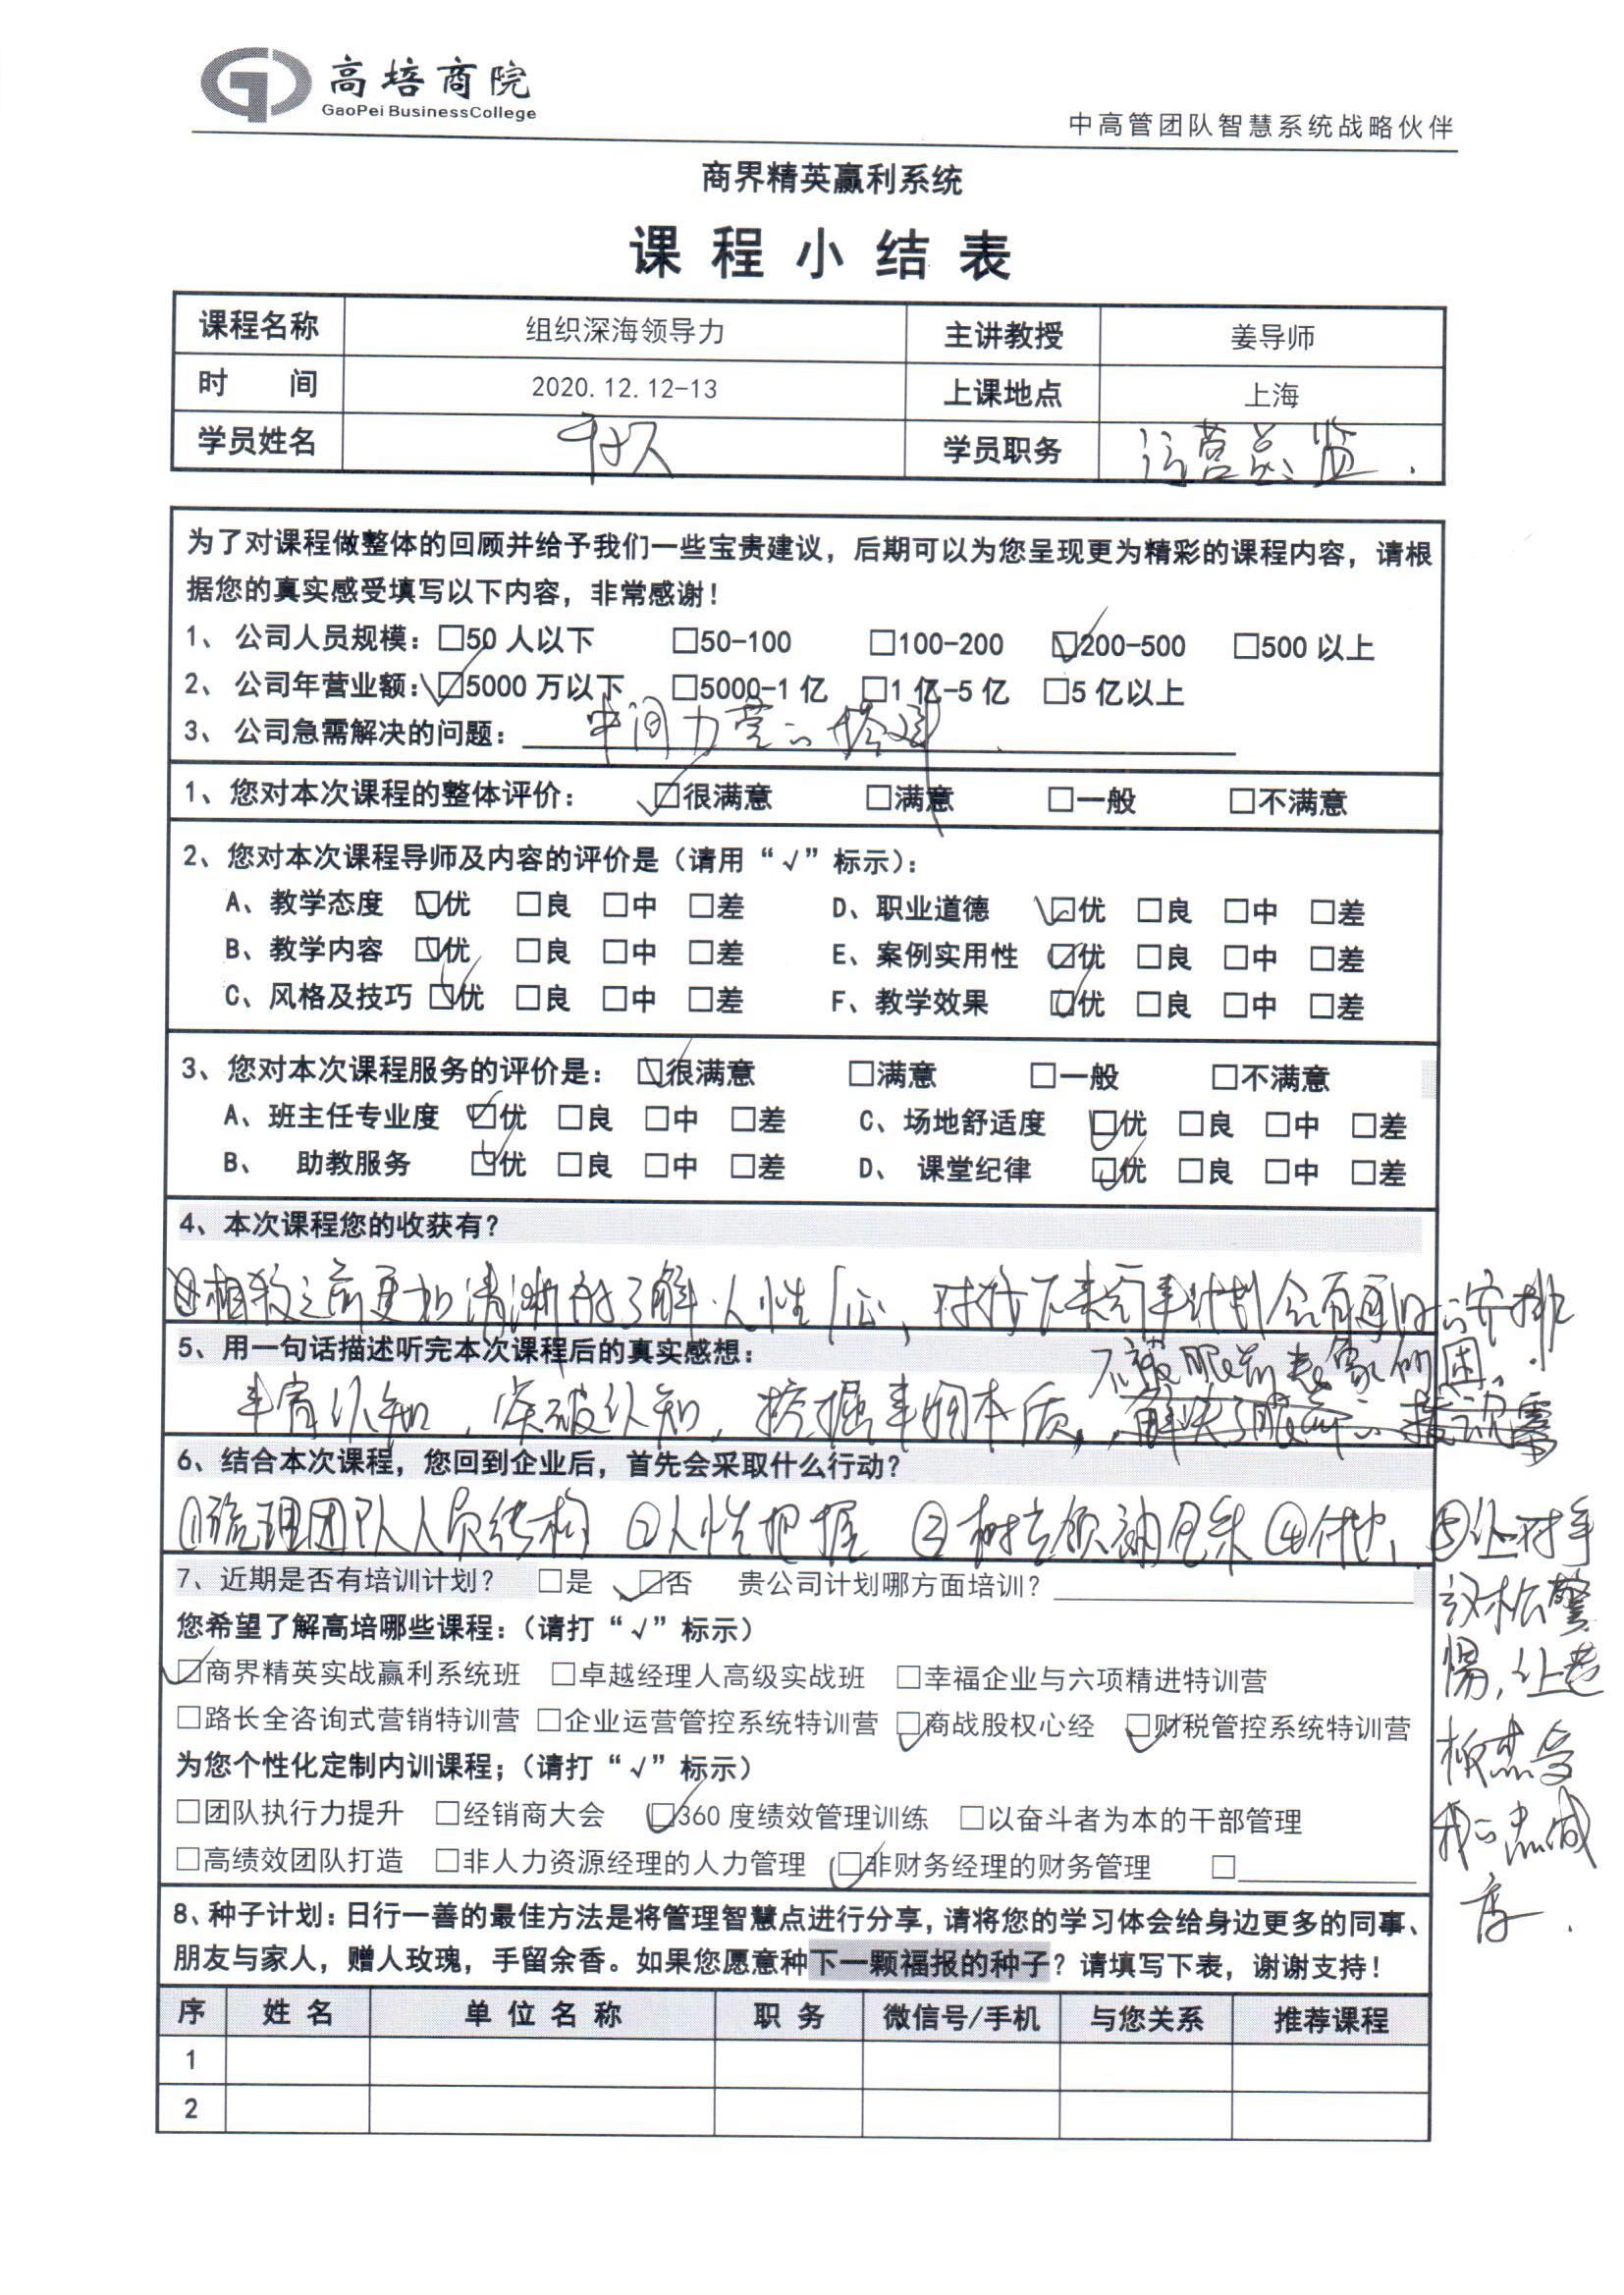 高培商院
GaoPei BusinessCollege
中高管团队智慧系统战略伙伴
商界精英赢利系统
课程小结表
课程名称 组织深海领导力 主讲教授 姜导师
时 间 2020.12.12-13 上课地点 上海
学员姓名 学员职务 运营总监.
为了对课程做整体的回顾并给予我们一些宝贵建议，后期可以为您呈现更为精彩的课程内容，请根
据您的真实感受填写以下内容，非常感谢！
1、 公司人员规模：□50 人以下 □50-100 □100-200 ☑200-500 □500 以上
2、 公司年营业额：☑5000 万以下 □5000-1 亿 □1 亿-5 亿 □5 亿以上
3、 公司急需解决的问题：中间力量的搭建
1、您对本次课程的整体评价： ☑很满意 □满意 □一般 □不满意
2、您对本次课程导师及内容的评价是（请用“√”标示）：
A、教学态度 ☑优 □良 □中 □差 D、职业道德 ☑优 □良 □中 □差
B、教学内容 ☑优 □良 □中 □差 E、案例实用性 ☑优 □良 □中 □差
C、风格及技巧 ☑优 □良 □中 □差 F、教学效果 ☑优 □良 □中 □差
3、您对本次课程服务的评价是： ☑很满意 □满意 □一般 □不满意
A、班主任专业度 ☑优 □良 □中 □差 C、场地舒适度 ☑优 □良 □中 □差
B、 助教服务 ☑优 □良 □中 □差 D、 课堂纪律 ☑优 □良 □中 □差
4、本次课程您的收获有？
相较之前更加清晰的了解人性/心，对接下来行事计划会有更好的安排
5、用一句话描述听完本次课程后的真实感想：
不被眼前表象所困.
丰富认知，突破认知，挖掘事物本质，
6、结合本次课程，您回到企业后，首先会采取什么行动？
①梳理团队人员结构 ②人性把握 ③树立领袖 ④ ⑤让对手
放松警
惕，让老
板感受
我的忠诚
度.
7、近期是否有培训计划？ □是 ☑否 贵公司计划哪方面培训？
您希望了解高培哪些课程：（请打“√”标示）
☑商界精英实战赢利系统班 □卓越经理人高级实战班 □幸福企业与六项精进特训营
□路长全咨询式营销特训营 □企业运营管控系统特训营 ☑商战股权心经 ☑财税管控系统特训营
为您个性化定制内训课程；（请打“√”标示）
□团队执行力提升 □经销商大会 ☑360 度绩效管理训练 □以奋斗者为本的干部管理
□高绩效团队打造 □非人力资源经理的人力管理 ☑非财务经理的财务管理 □
8、种子计划：日行一善的最佳方法是将管理智慧点进行分享，请将您的学习体会给身边更多的同事、
朋友与家人，赠人玫瑰，手留余香。如果您愿意种下一颗福报的种子？请填写下表，谢谢支持！
序 姓 名 单 位 名 称 职 务 微信号/手机 与您关系 推荐课程
1
2